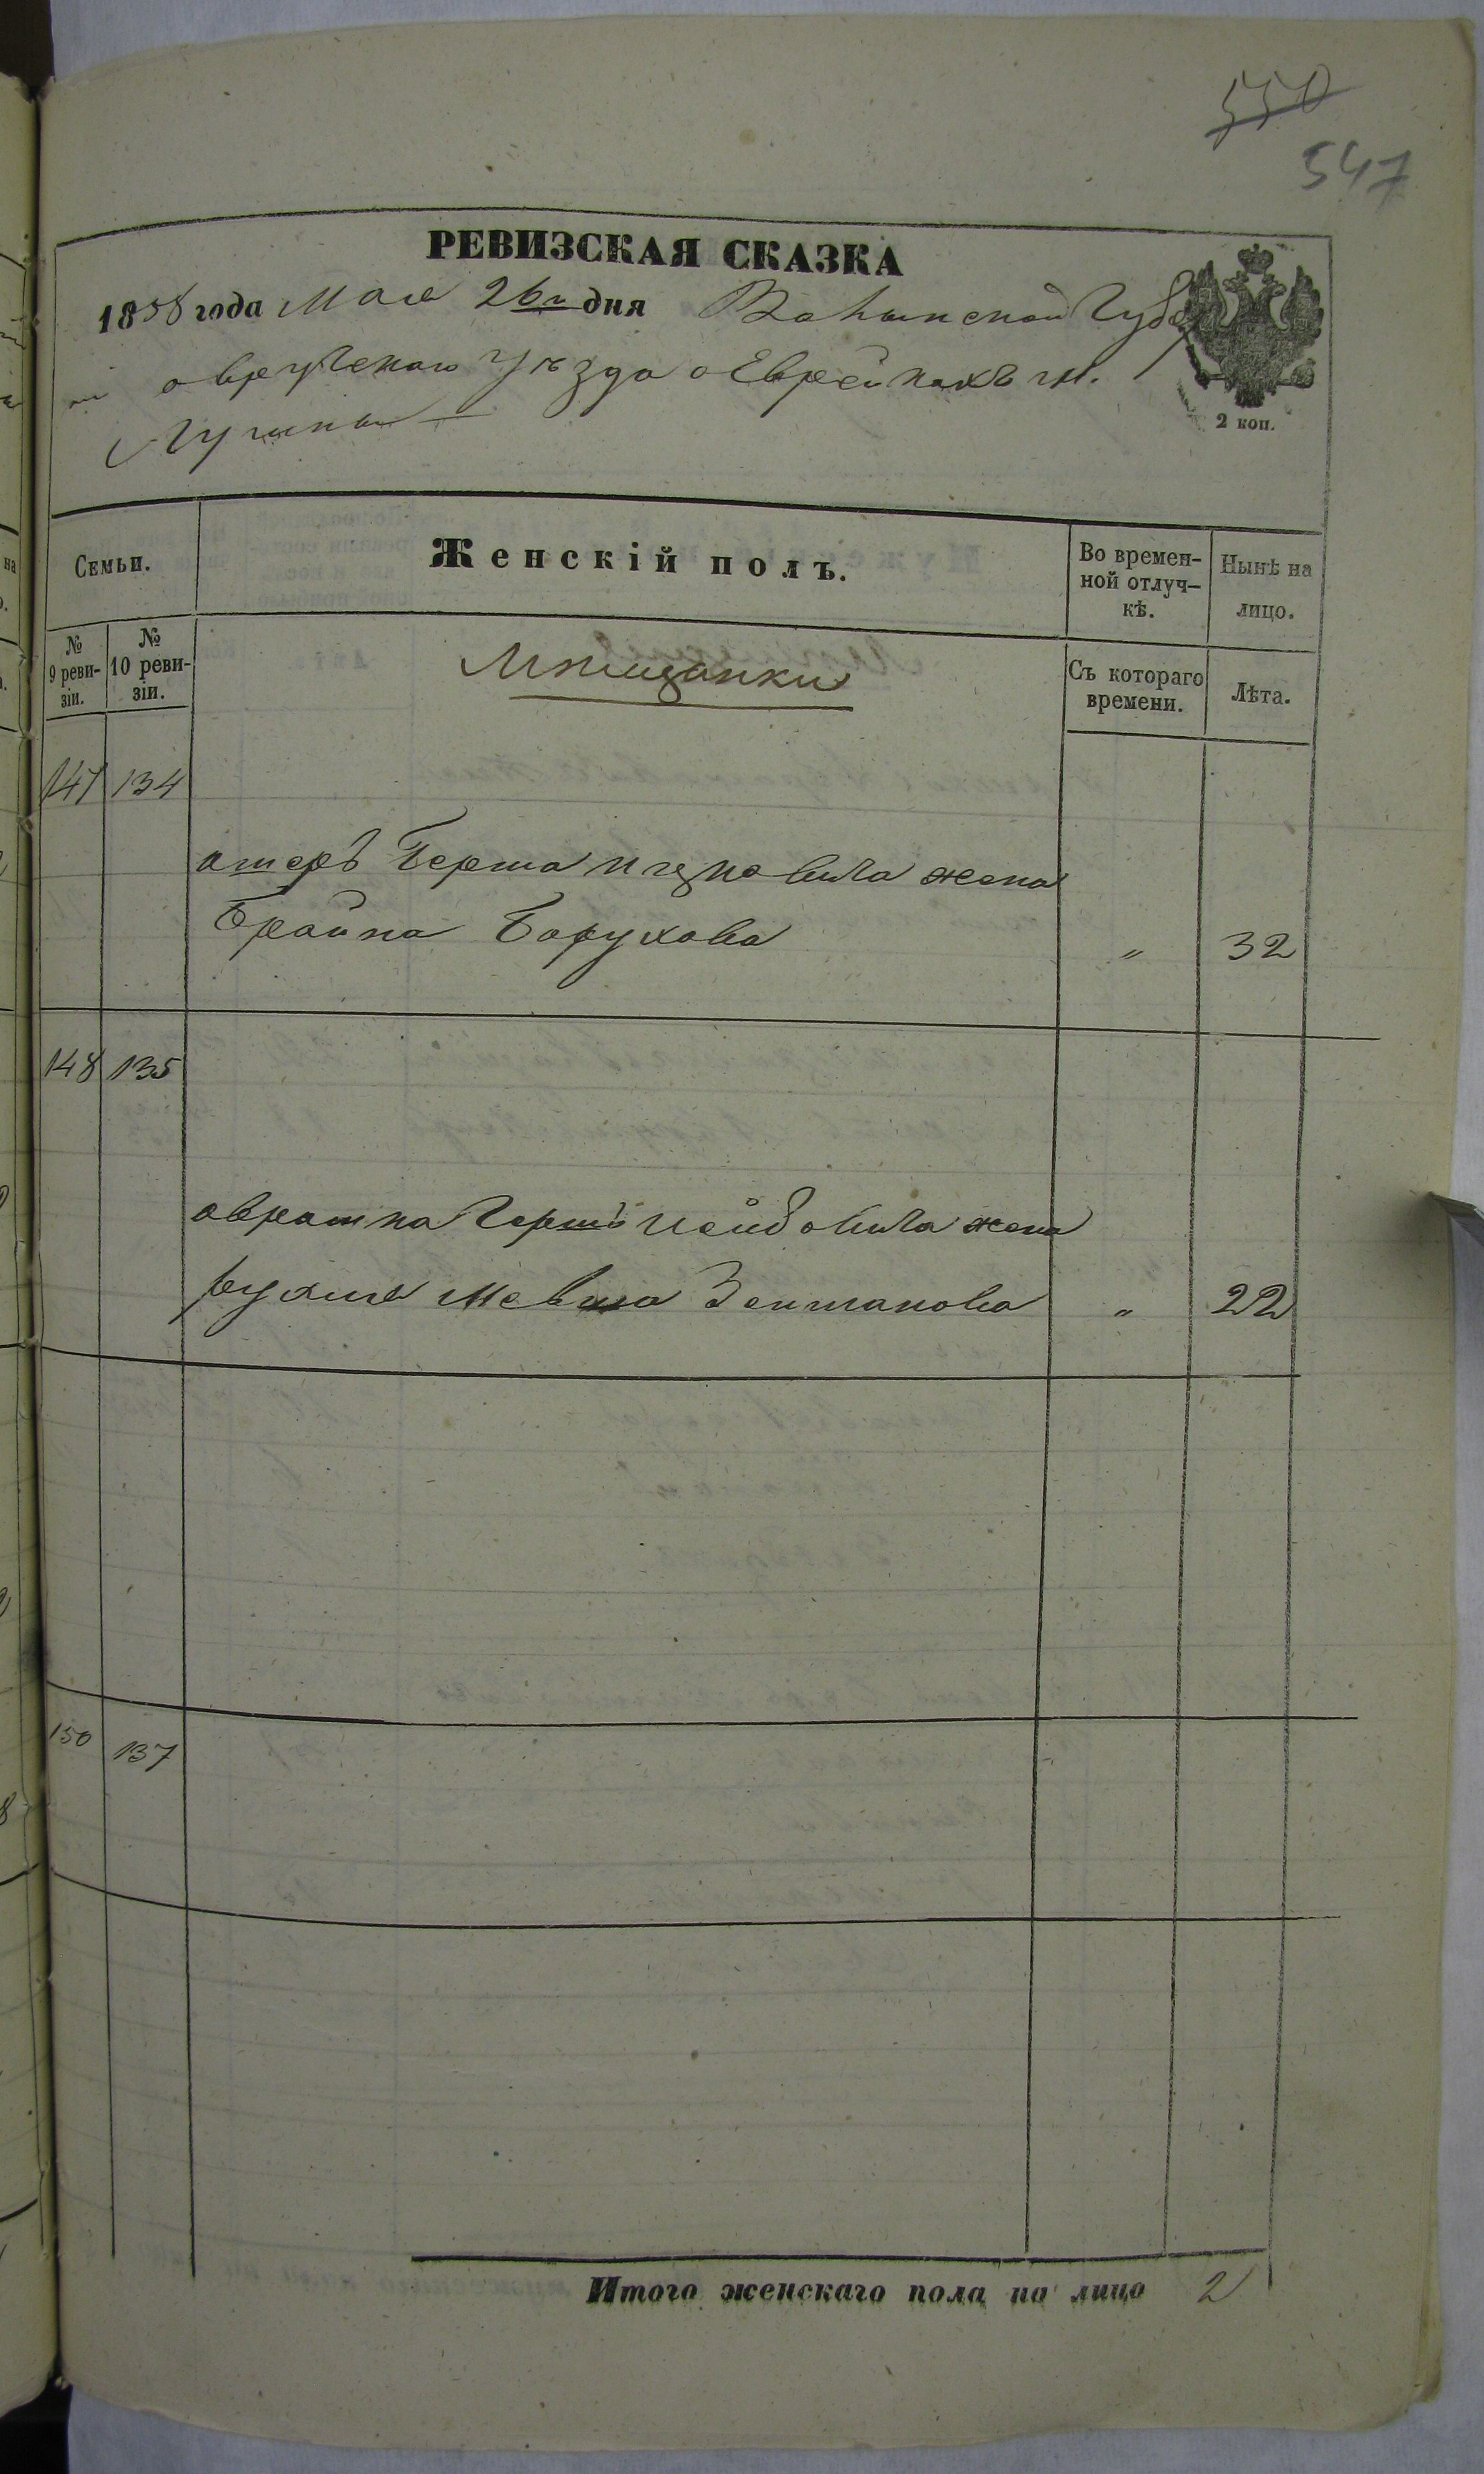 550
547
РЕВИЗСКАЯ СКАЗКА
1858 года Мая 26го дня Волынской Губер
нии овручскаго уѣзда о Еврейкахъ м.
Лугинъ
Семьи.
Женскій полъ.
Во времен-
ной отлуч-
кѣ.
Нынѣ на
лицо.
№
9 реви-
зіи.
№
10 реви-
зіи.
Мѣщанки
Съ котораго
времени.
Лѣта.
147 134
ошеръ Берка Ицковича жена
Брайна Борухова " 32
148 135
аврамка Гершъ жена
рухля " 22
150 137
Итого женскаго пола на лицо 2